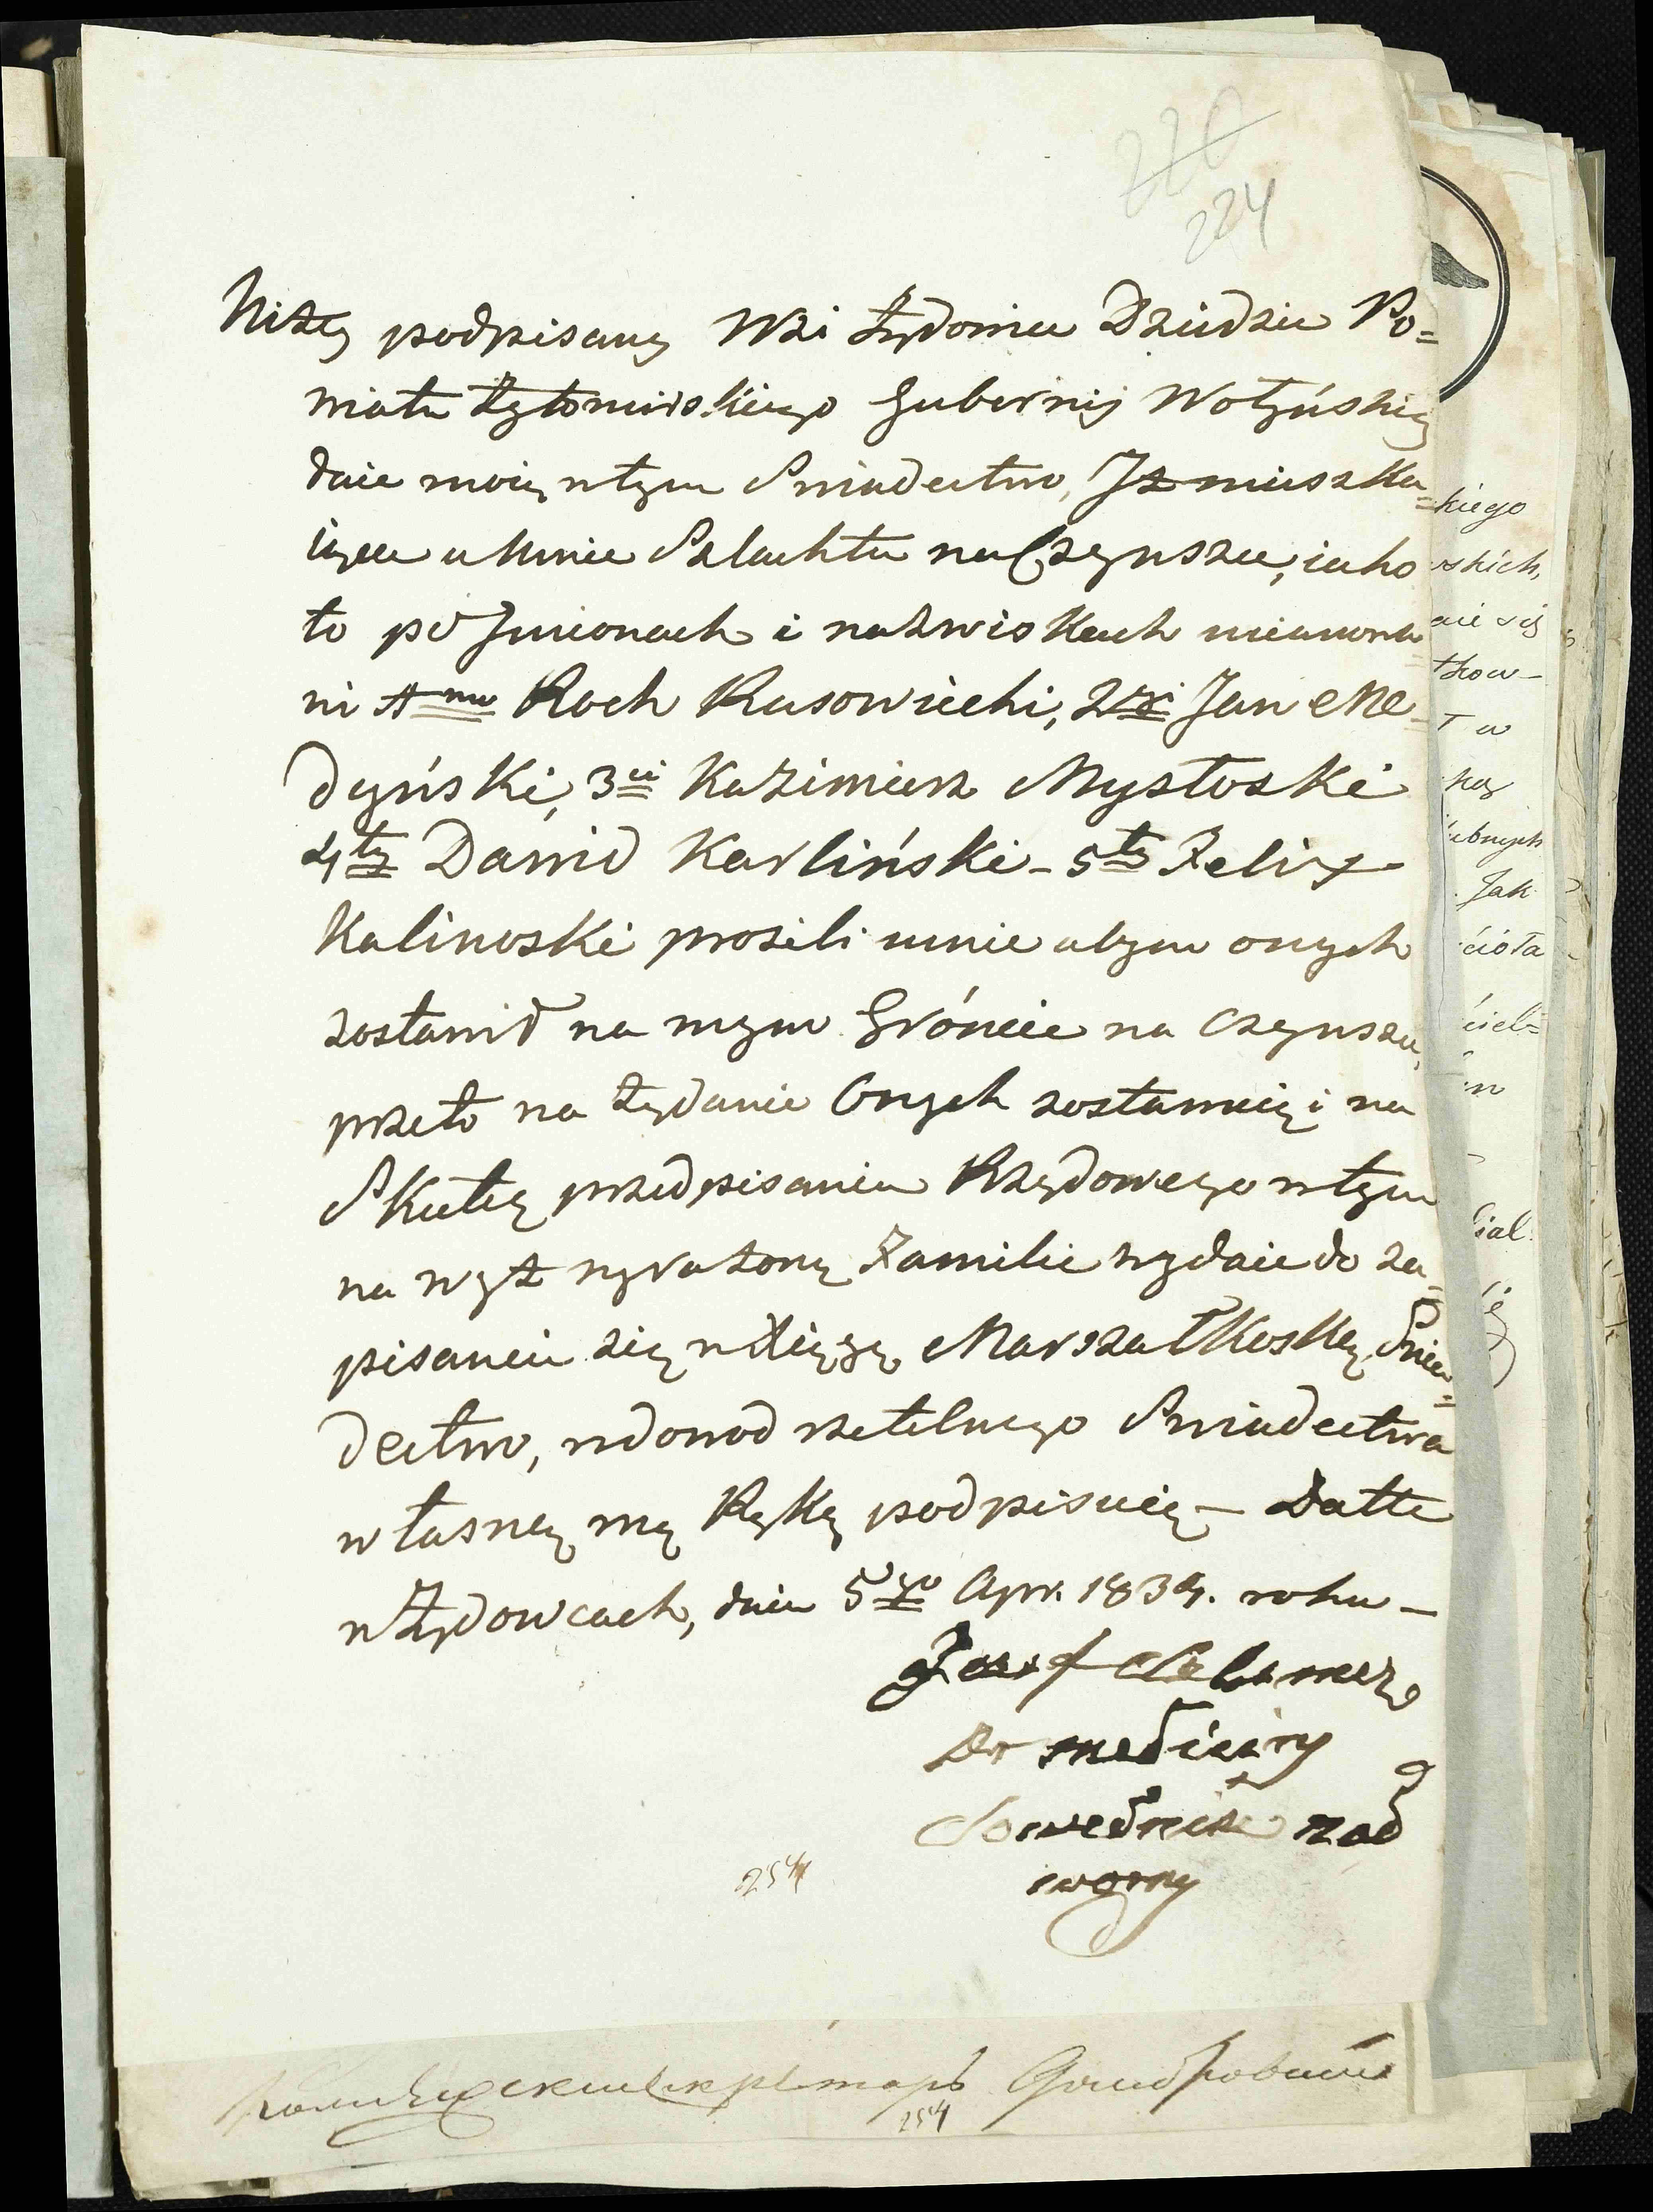 220
224
Niżey podpisany Wsi Żydowiec Dziedzic Po=
wiatu Żytomirskiego Gubernij Wołyńskiey
daie moię wtym Swiadectwo, Iż mieszka=
iące u Mnie Szlachta na Czynszu, iako
to po Jmionach i nazwiskach mianowa=
ni 1mo Roch Rusowiecki, 2gi Jan Me=
dyński, 3ci Kazimierz Mysłoski
4ty Dawid Karliński - 5ty Felix
Kalinoski prosili mnie abym onych
zostawił na mym Gróncie na Czynszu,
przeto na żądanie Onych zostawuię i na
Skutek przedpisania Rządowego wtym
na wyż wyrażoną Familie wydaie do za=
pisania się w Xięgę Marszałkoską Swia=
dectwo, w dowod rzetelnego Swiadectwa
własną mą Ręką podpisuię - Datte
w Żydowcach, dnia 5go Apr. 1834. roku -
Jozef
Dr mediciny
Sowednik nad
worny
254
254
kiego
skich,
nie się
tkow-
T w
ubnych
Jak
cioła
ciel=